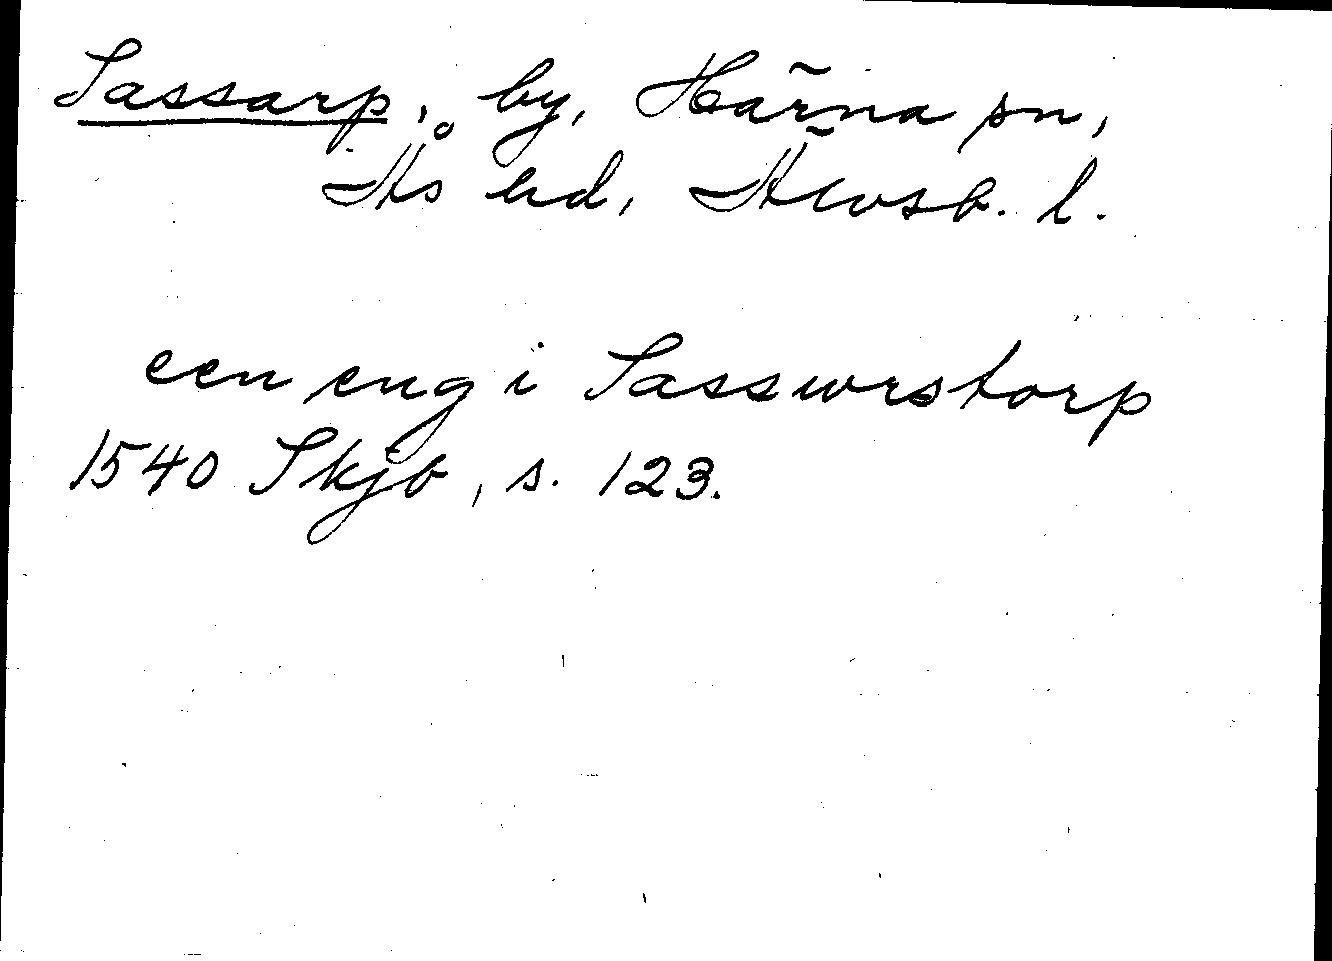 Sassarp, by, Härna sn,
Ås hd, Älvsb. l.
een eng i Sasswrstorp
1540 Skjb, s. 123.